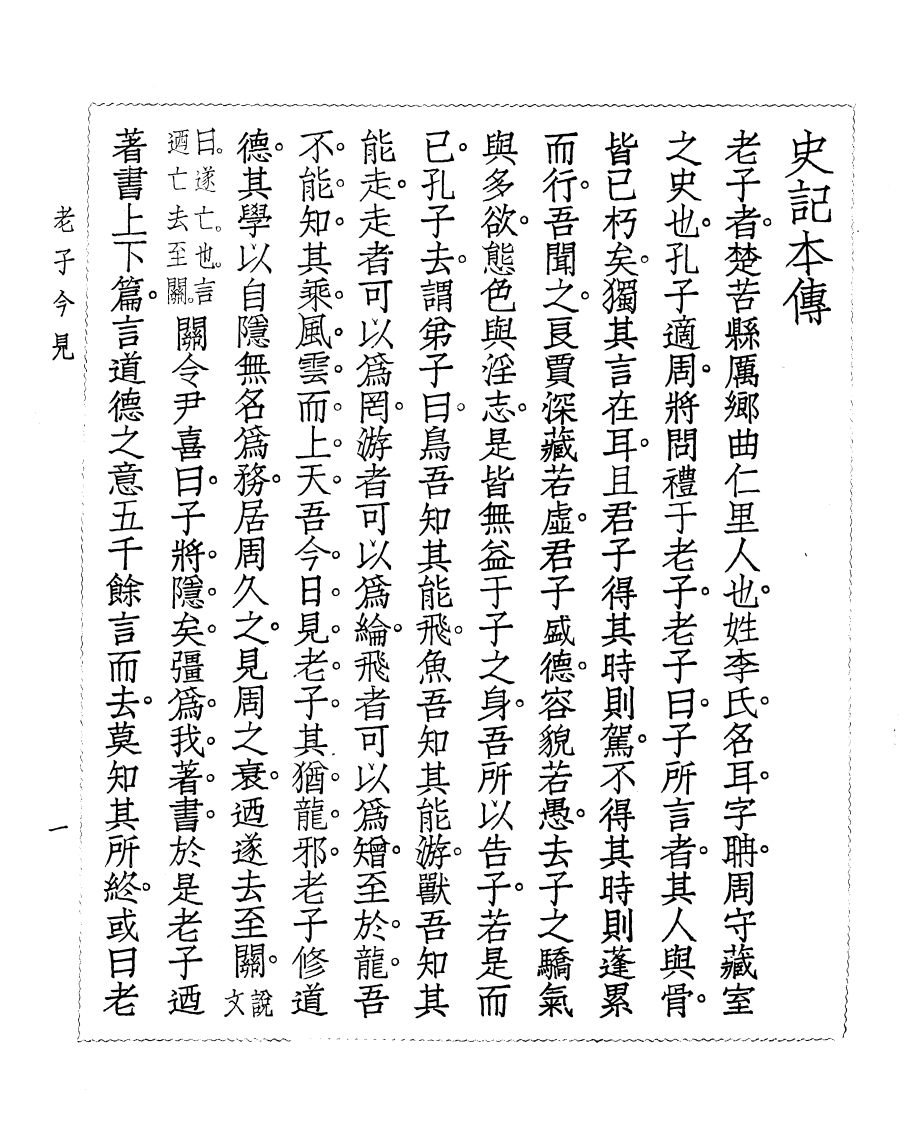 史記本傳
老子者。楚苦縣厲鄉曲仁里人也。姓李氏。名耳。字聃。周守藏室
之史也。孔子適周。將問禮于老子。老子曰。子所言者。其人與骨。
皆已朽矣。獨其言在耳。且君子得其時則駕。不得其時則蓬累
而行。吾聞之。良賈深藏若虛。君子盛德。容貌若愚。去子之驕氣
與多欲。態色與淫志。是皆無益于子之身。吾所以告子。若是而
已。孔子去。謂弟子曰。鳥吾知其能飛。魚吾知其能游。獸吾知其
能走。走者可以爲罔。游者可以爲綸。飛者可以爲矰。至於。龍。吾
不。能。知。其乘。風。雲。而。上。天。吾今。日。見。老。子。其猶。龍。邪。老子修道
德。其學以自隱無名爲務。居周久之。見周之衰。迺遂去至關。說文
曰。遂亡。也。言迺亡去至關。關令尹喜曰。子將。隱。矣。彊爲。我。著。書。於是老子迺
著書上下篇。言道德之意五千餘言而去。莫知其所終。或曰老
老子今見
一